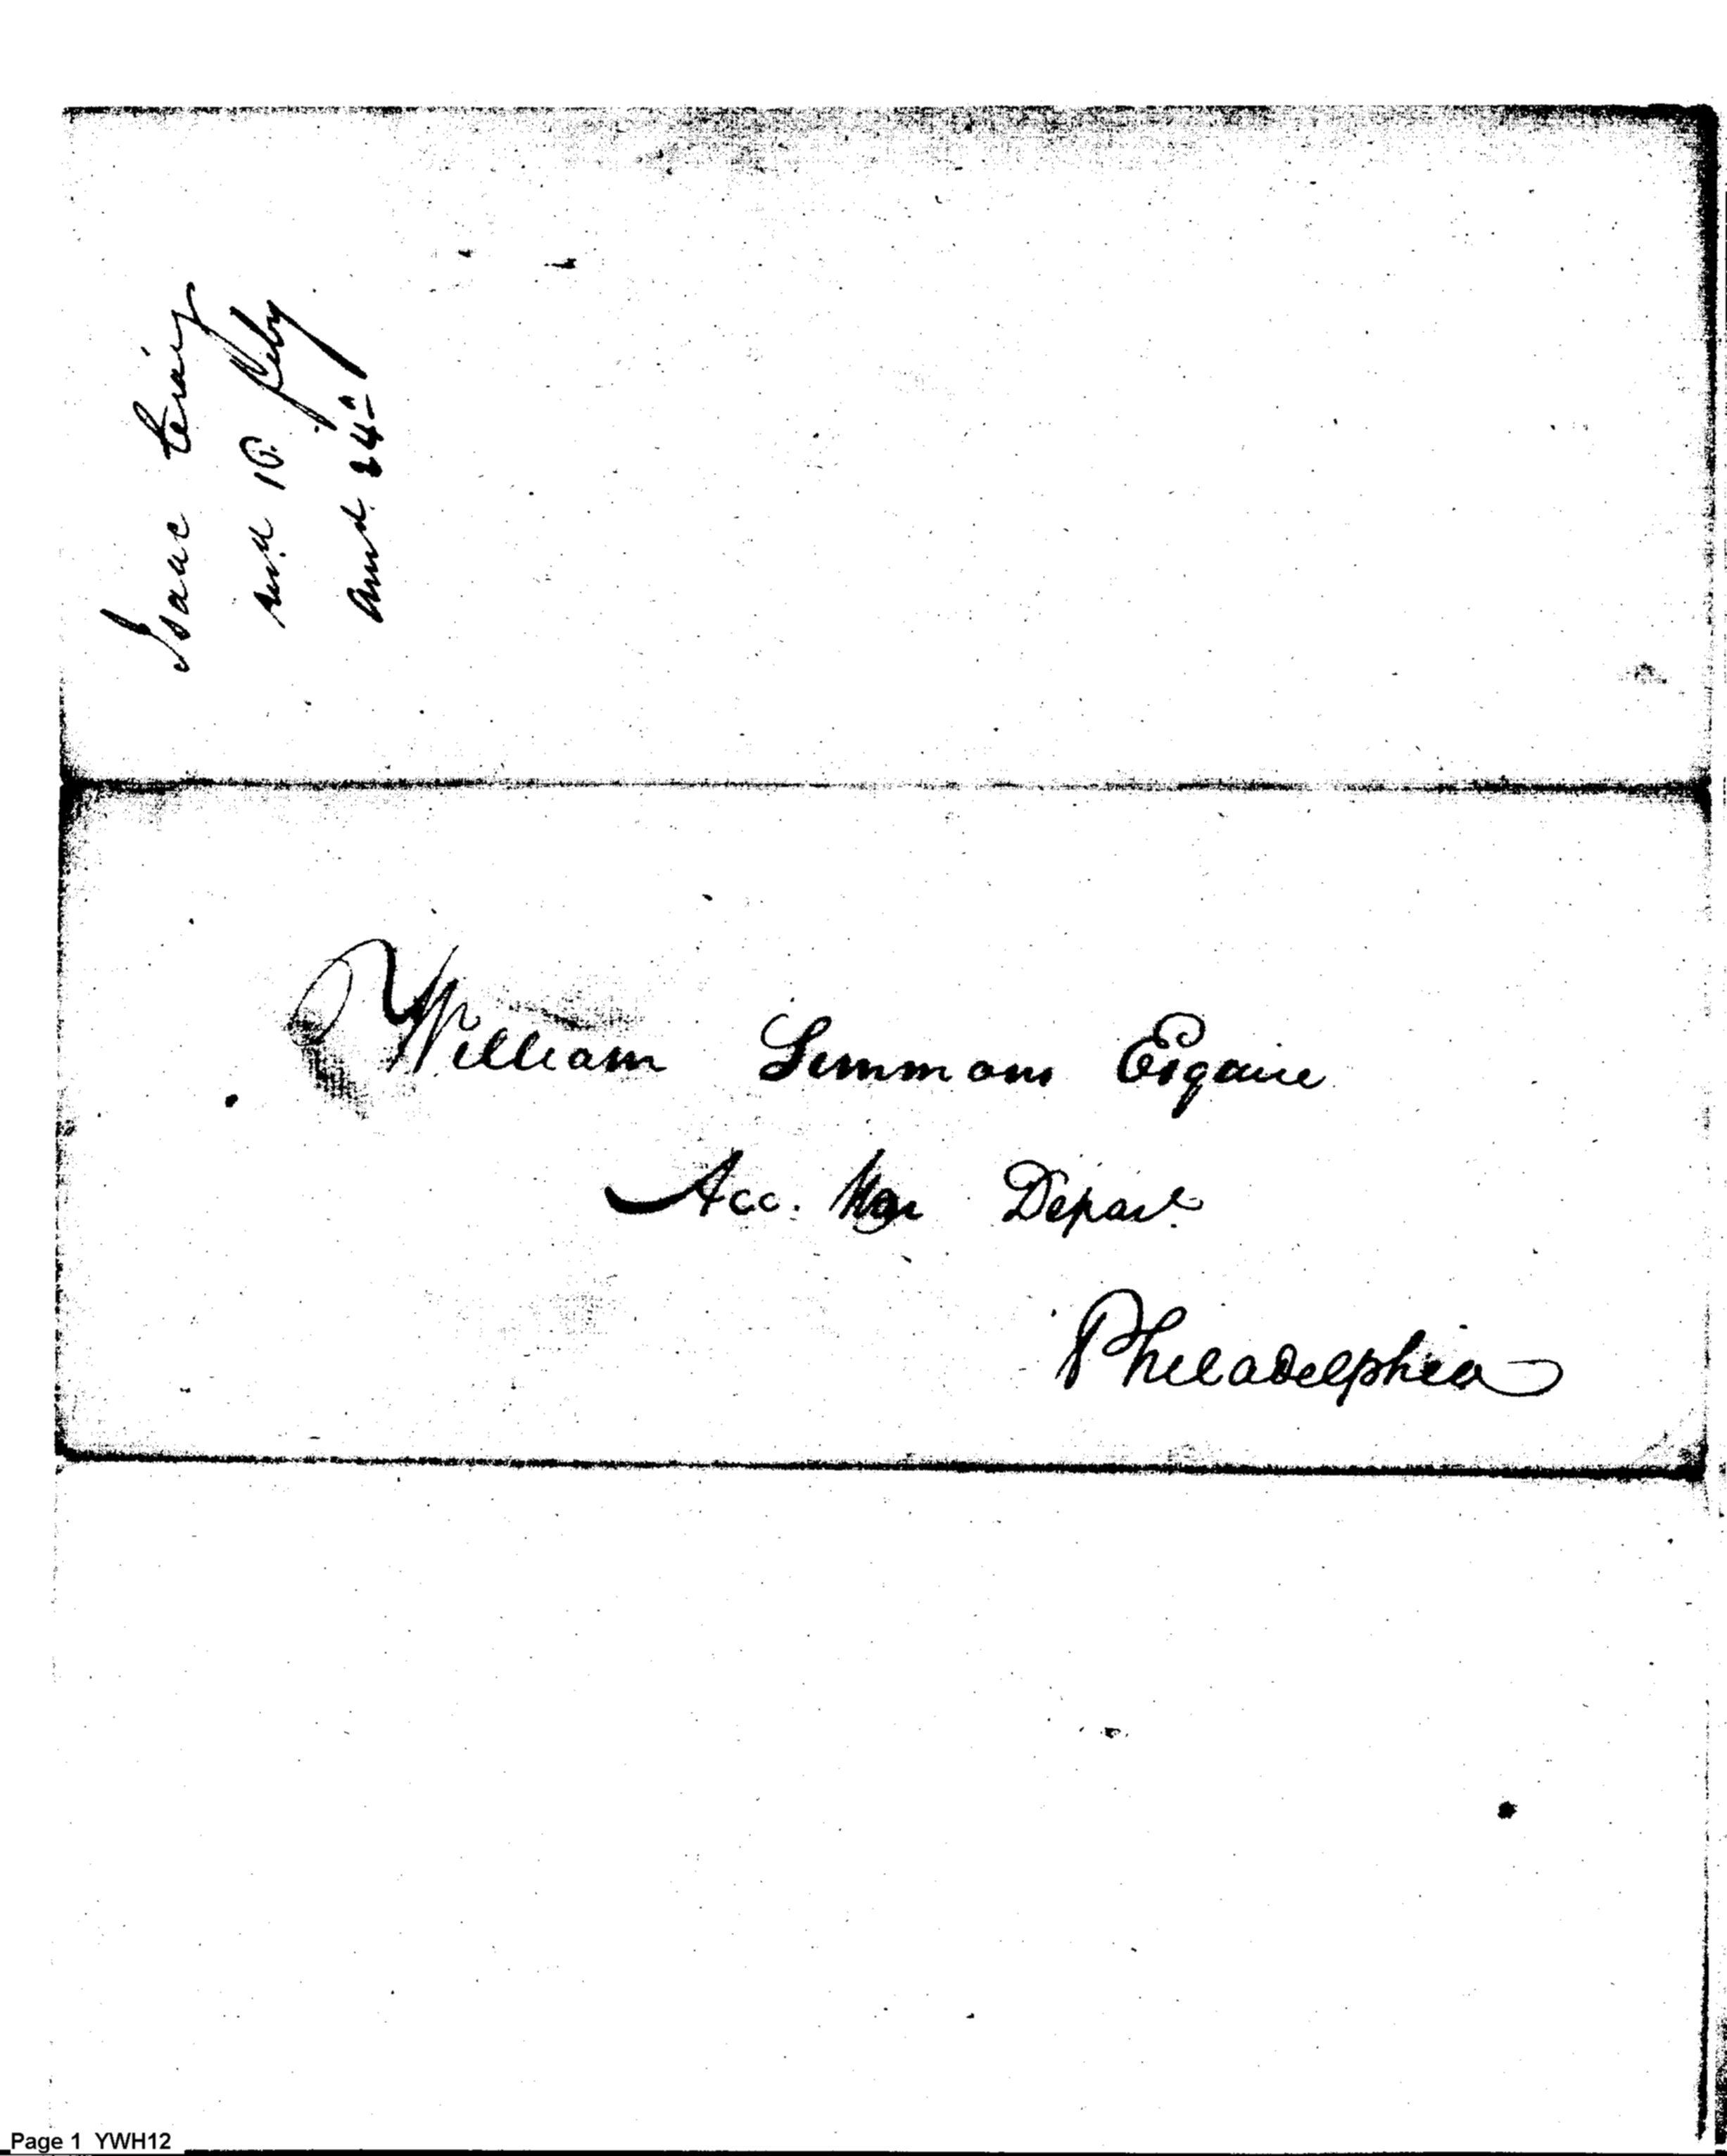 Isaac Craig
recd. 16. Feby
Answd. 24th
William Simmons Esquire
Acc. War Depart.
Philadelphia
Page 1 YWH12